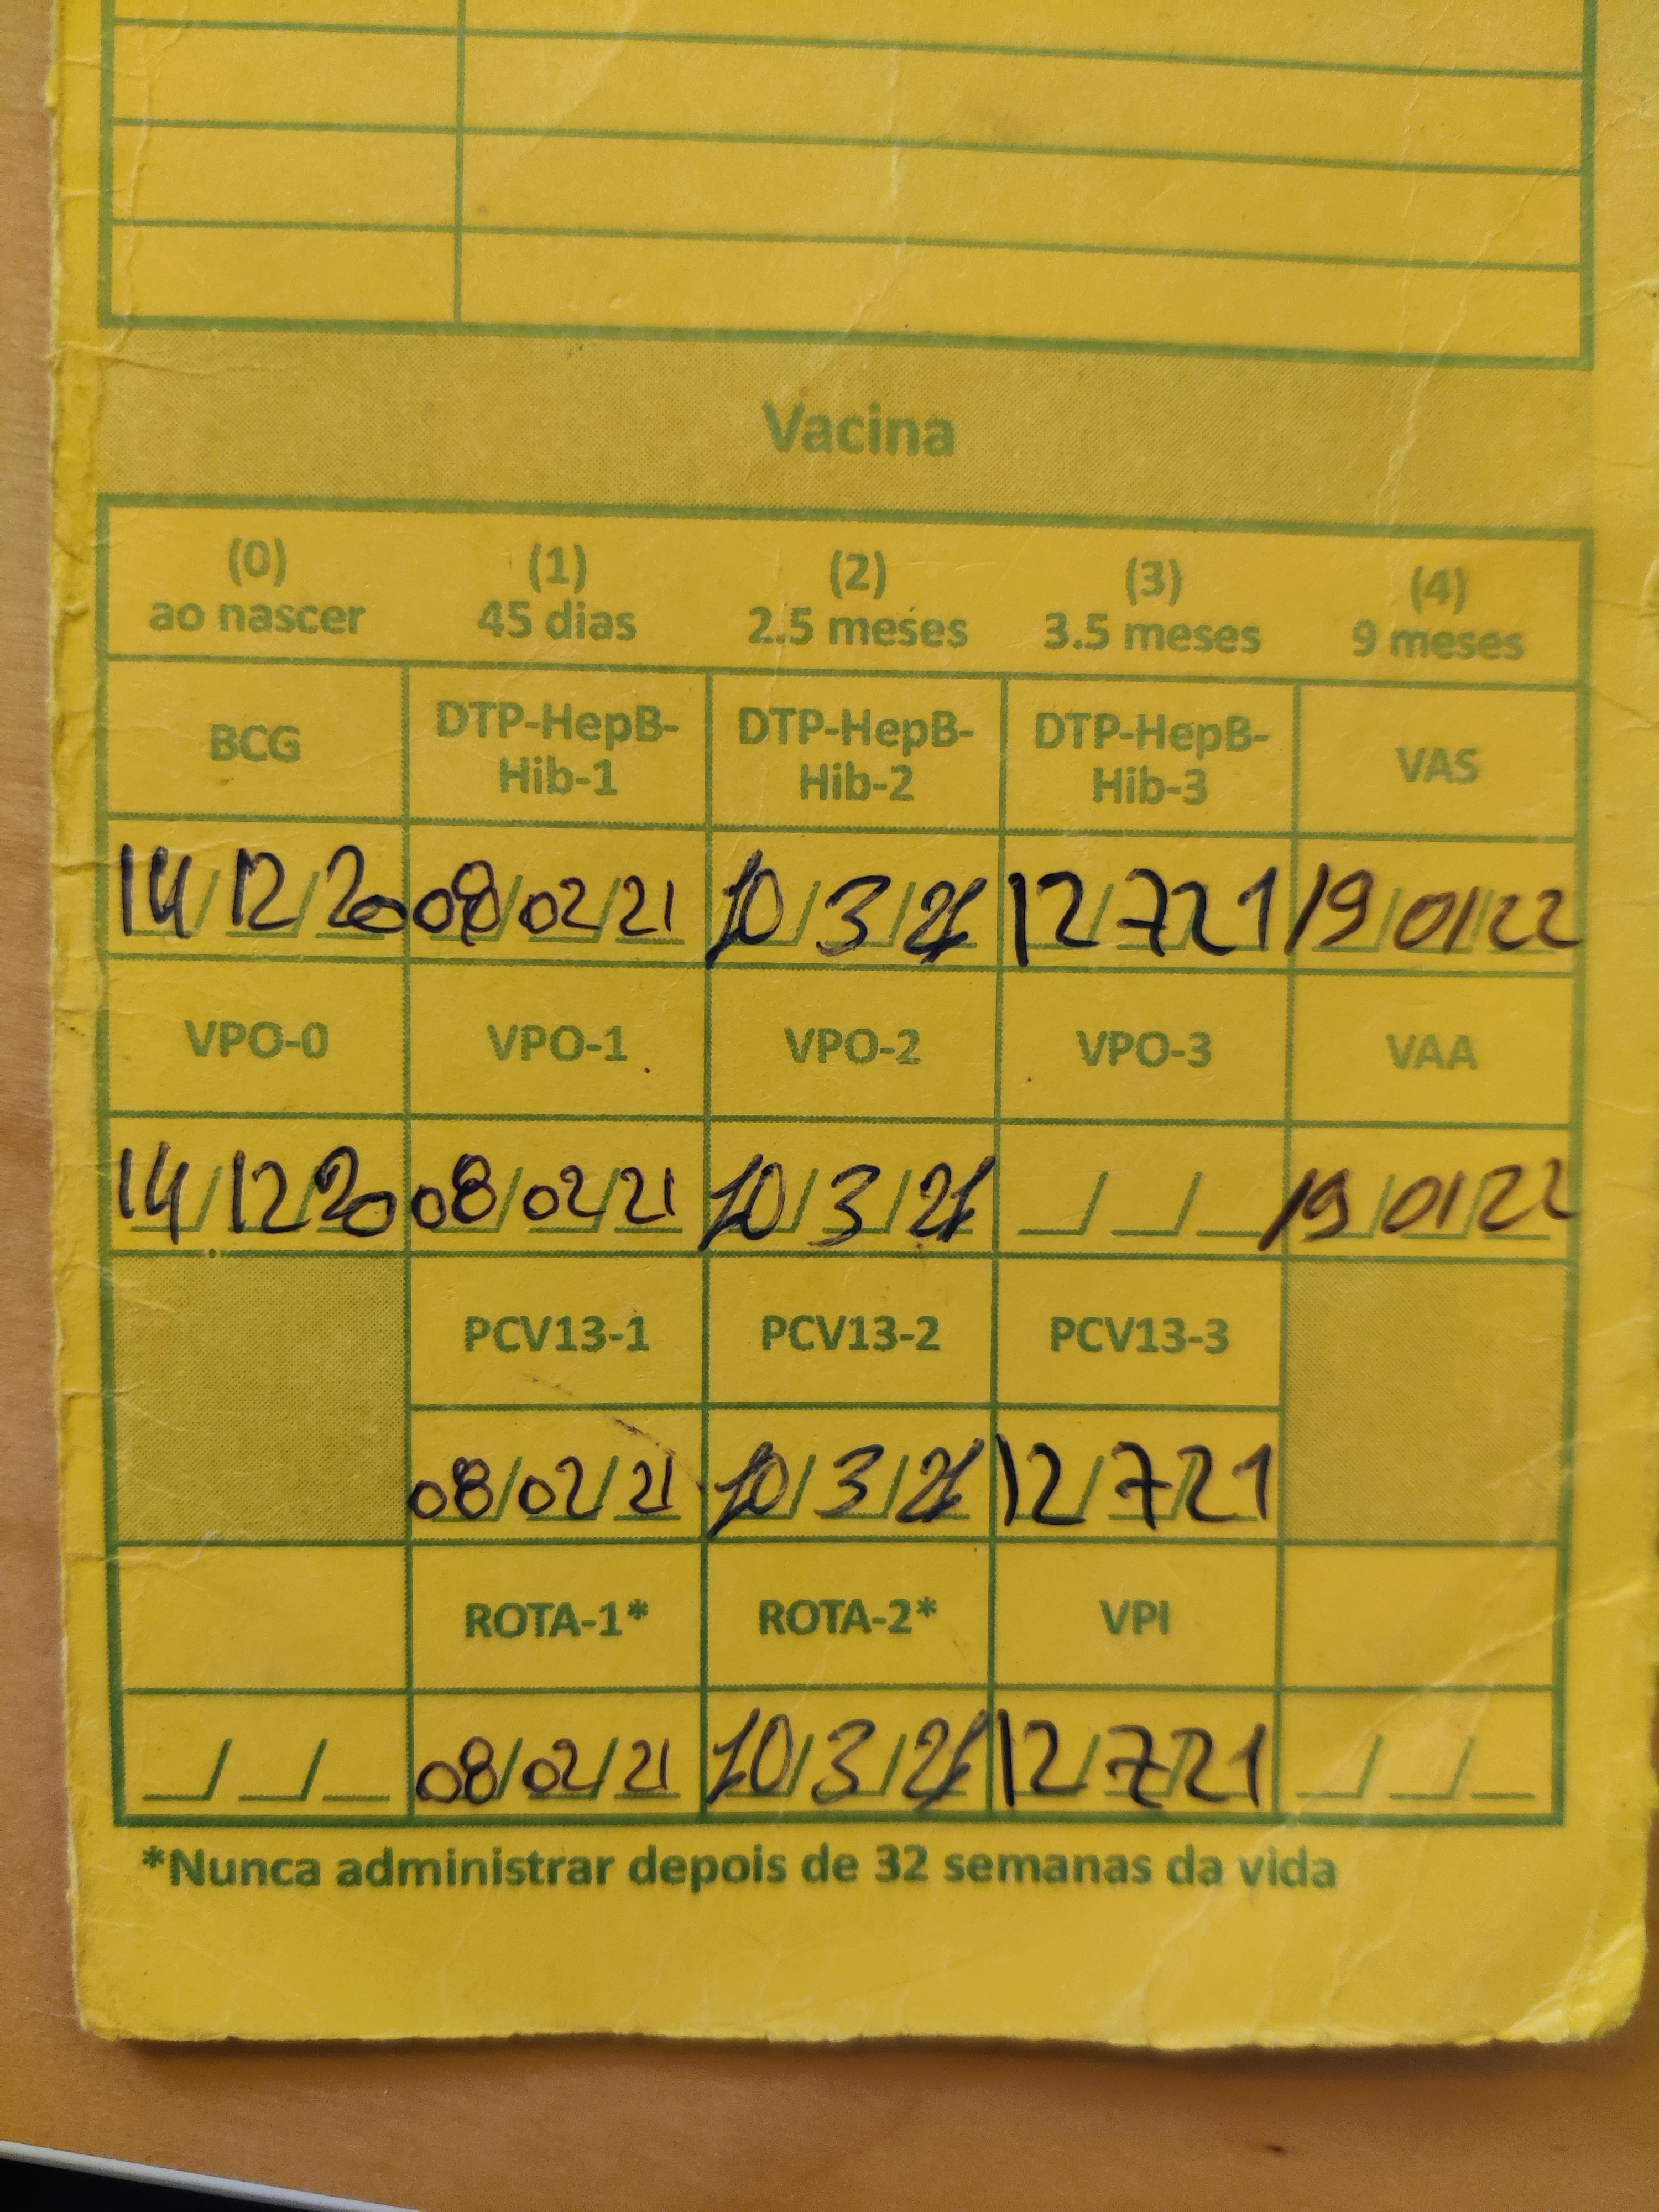 Vacina
(0) (1) (2) (3) (4)
ao nascer 45 dias 2.5 meses 3.5 meses 9 meses
BCG DTP-HepB- DTP-HepB- DTP-HepB- VAS
Hib-1 Hib-2 Hib-3
14/12/20 08/02/21 10/3/21 12/7/21 19/01/22
VPO-0 VPO-1 VPO-2 VPO-3 VAA
14/12/20 08/02/21 10/3/21 __/__/__ 19/01/22
PCV13-1 PCV13-2 PCV13-3
08/02/21 10/3/21 12/7/21
ROTA-1* ROTA-2* VPI
__/__/__ 08/02/21 10/3/21 12/7/21 __/__/__
*Nunca administrar depois de 32 semanas da vida